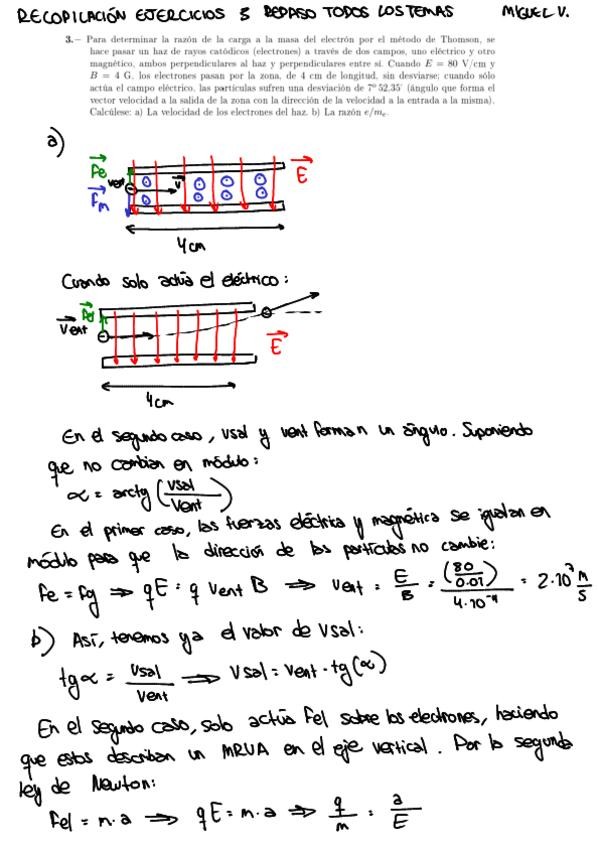 RECOPILACIÓN EJERCICIOS 3 REPASO TODOS LOS TEMAS MIGUEL V.
3.— Para determinar la razón de la carga a la masa del electrón por el método de Thomson, se
hace pasar un haz de rayos catódicos (electrones) a través de dos campos, uno eléctrico y otro
magnético, ambos perpendiculares al haz y perpendiculares entre sí. Cuando E = 80 V/cm y
B = 4 G, los electrones pasan por la zona, de 4 cm de longitud, sin desviarse; cuando sólo
actúa el campo eléctrico, las partículas sufren una desviación de 7° 52.35' (ángulo que forma el
vector velocidad a la salida de la zona con la dirección de la velocidad a la entrada a la misma).
Calcúlese: a) La velocidad de los electrones del haz. b) La razón e/mₑ.
a)
Fe
vent
v
E
Fm
4cm
Cuando solo actúa el eléctrico:
Fe
Vent
E
4cm
En el segundo caso, vsal y vent forman un ángulo. Suponiendo
que no cambian en módulo:
α = arctg (Vsal/Vent)
En el primer caso, las fuerzas eléctrica y magnética se igualan en
módulo para que la dirección de las partículas no cambie:
Fe = Fg ⇒ qE = q Vent B ⇒ Vent = E/B = (80/0.01)/4·10⁻⁴ = 2·10⁷ m/s
b) Así, tenemos ya el valor de Vsal:
tgα = Vsal/Vent ⇒ Vsal = Vent · tg(α)
En el segundo caso, solo actúa Fel sobre los electrones, haciendo
que estos describan un MRUA en el eje vertical. Por la segunda
ley de Newton:
Fel = m·a ⇒ qE = m·a ⇒ q/m = a/E